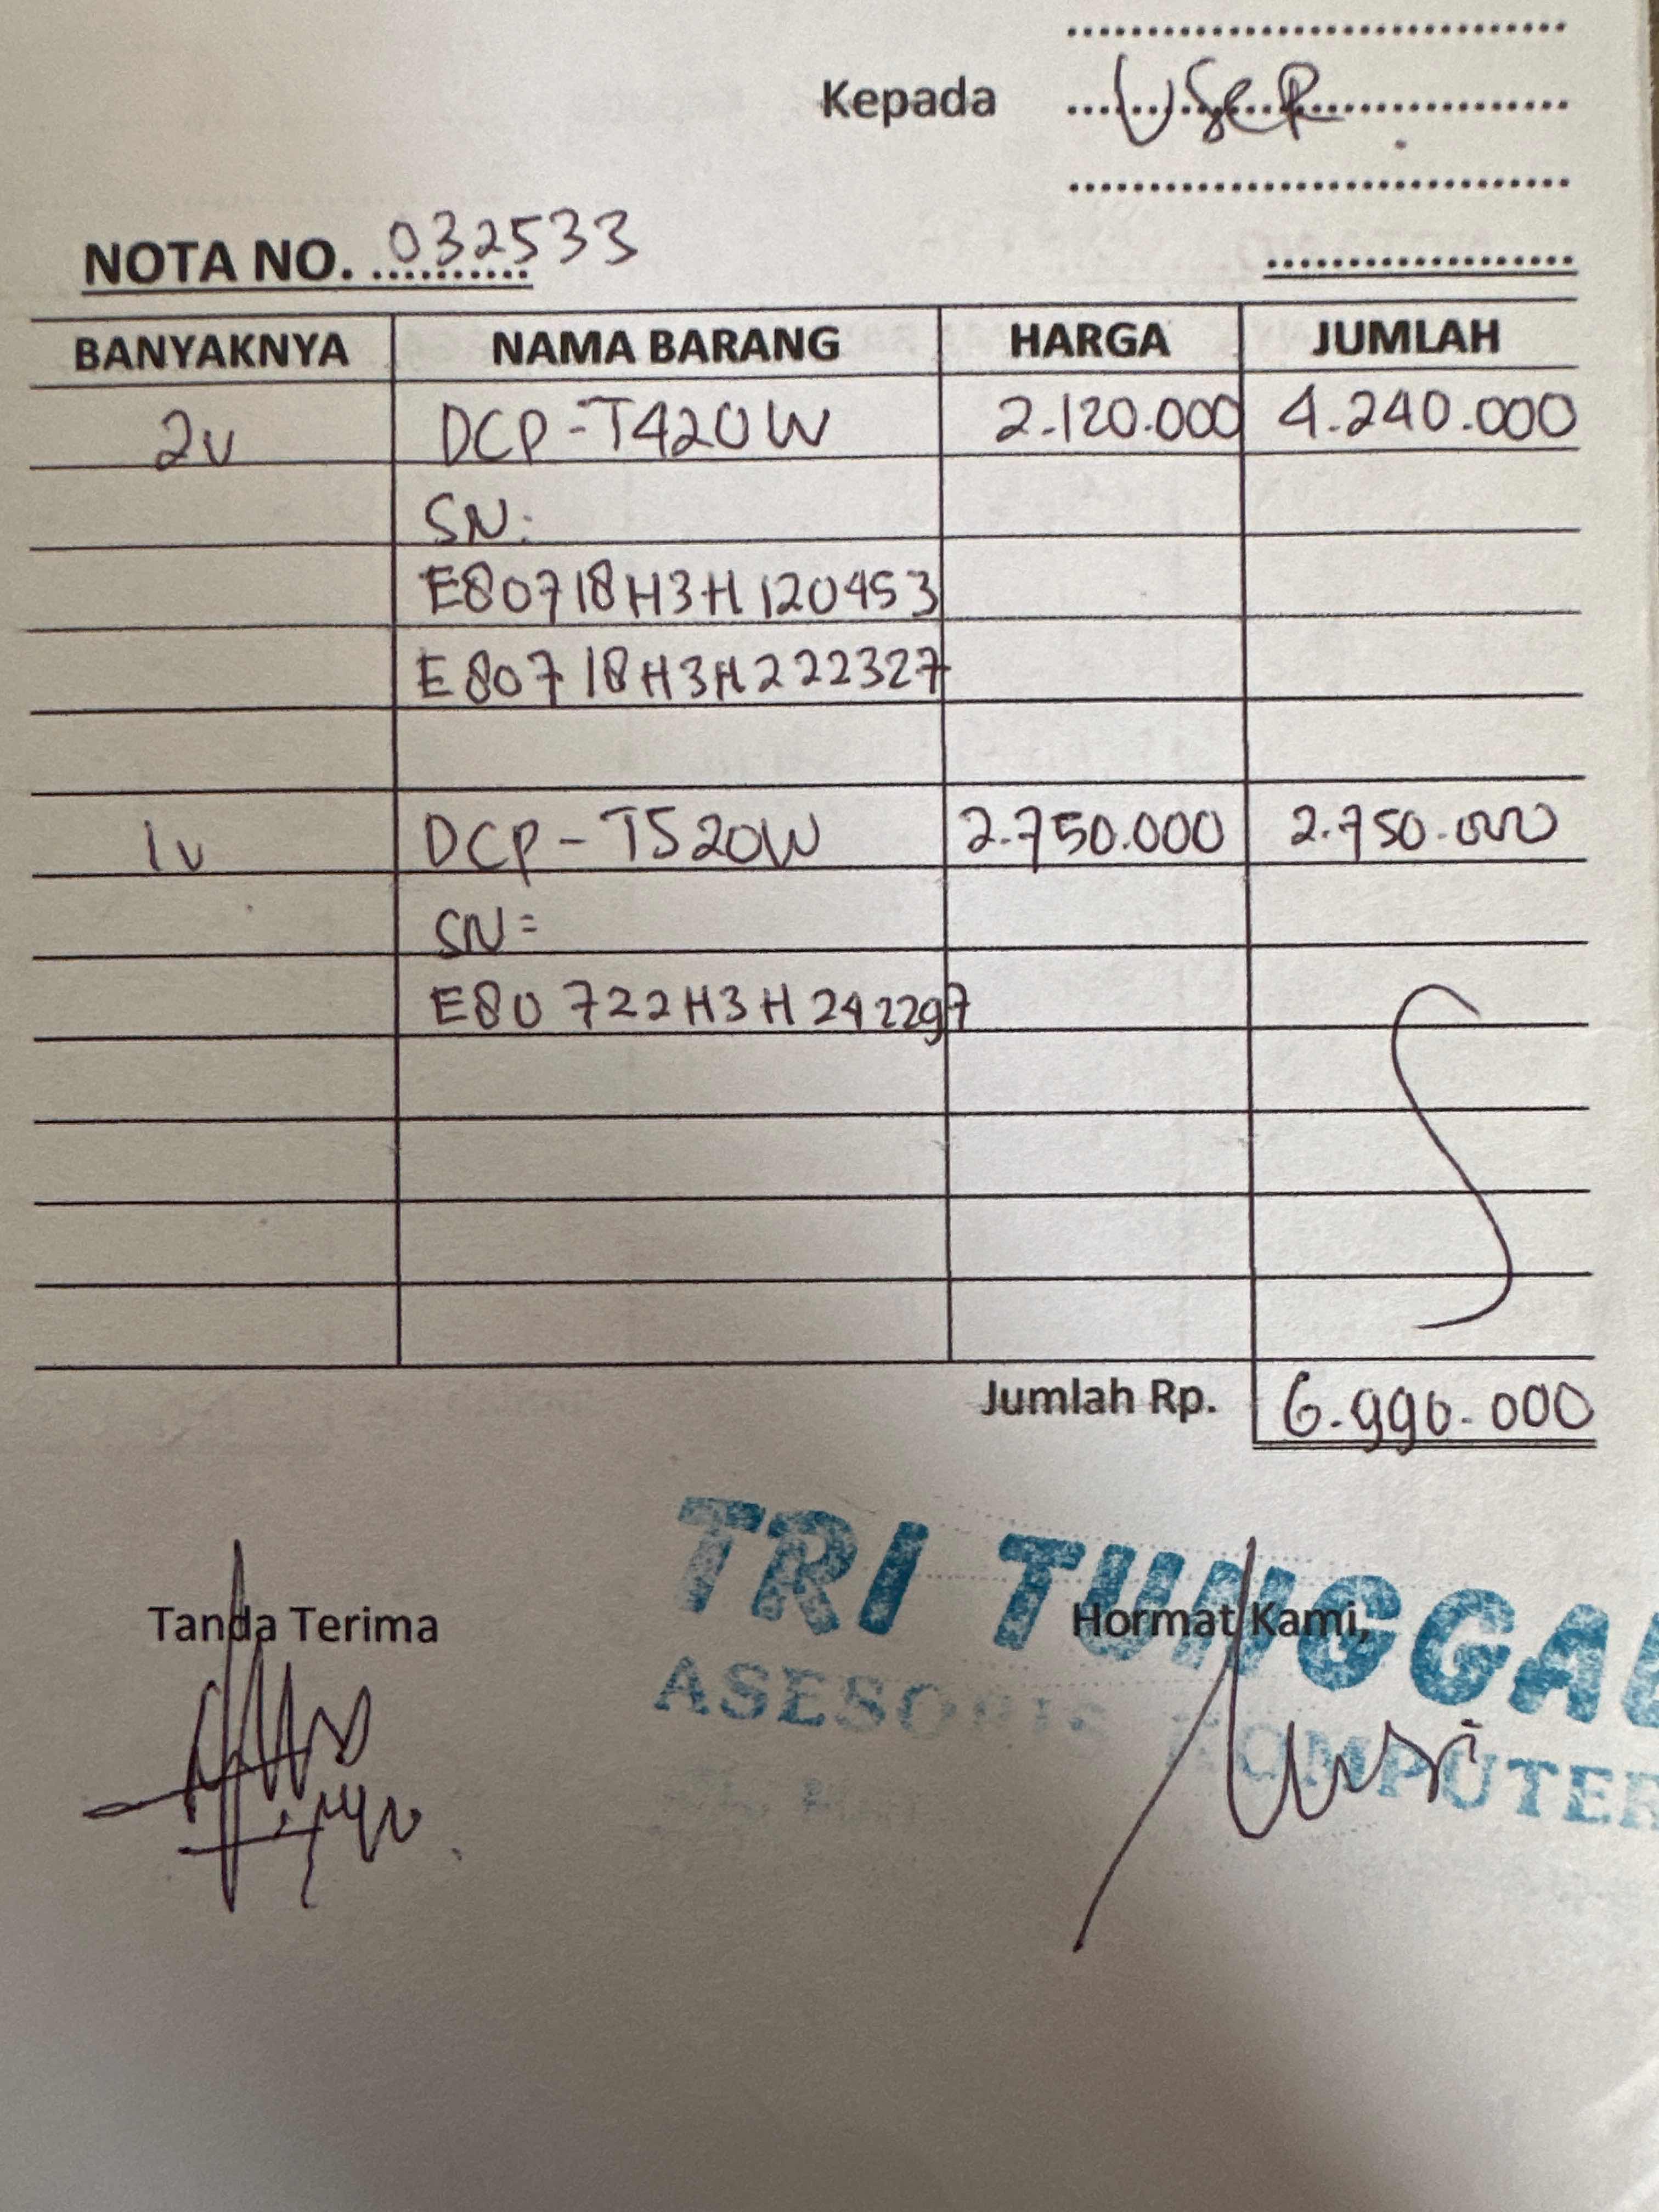 Kepada USER.
NOTA NO. 032533
BANYAKNYA NAMA BARANG HARGA JUMLAH
2v DCP-T420W 2.120.000 4.240.000
SN:
E80718H3H120453
E80718H3H222327
1v DCP-T520W 2.750.000 2.750.000
SN=
E80722H3H242297
Jumlah Rp. 6.990.000
TRI TUNGGAL
Tanda Terima Hormat Kami,
ASESORIS KOMPUTER